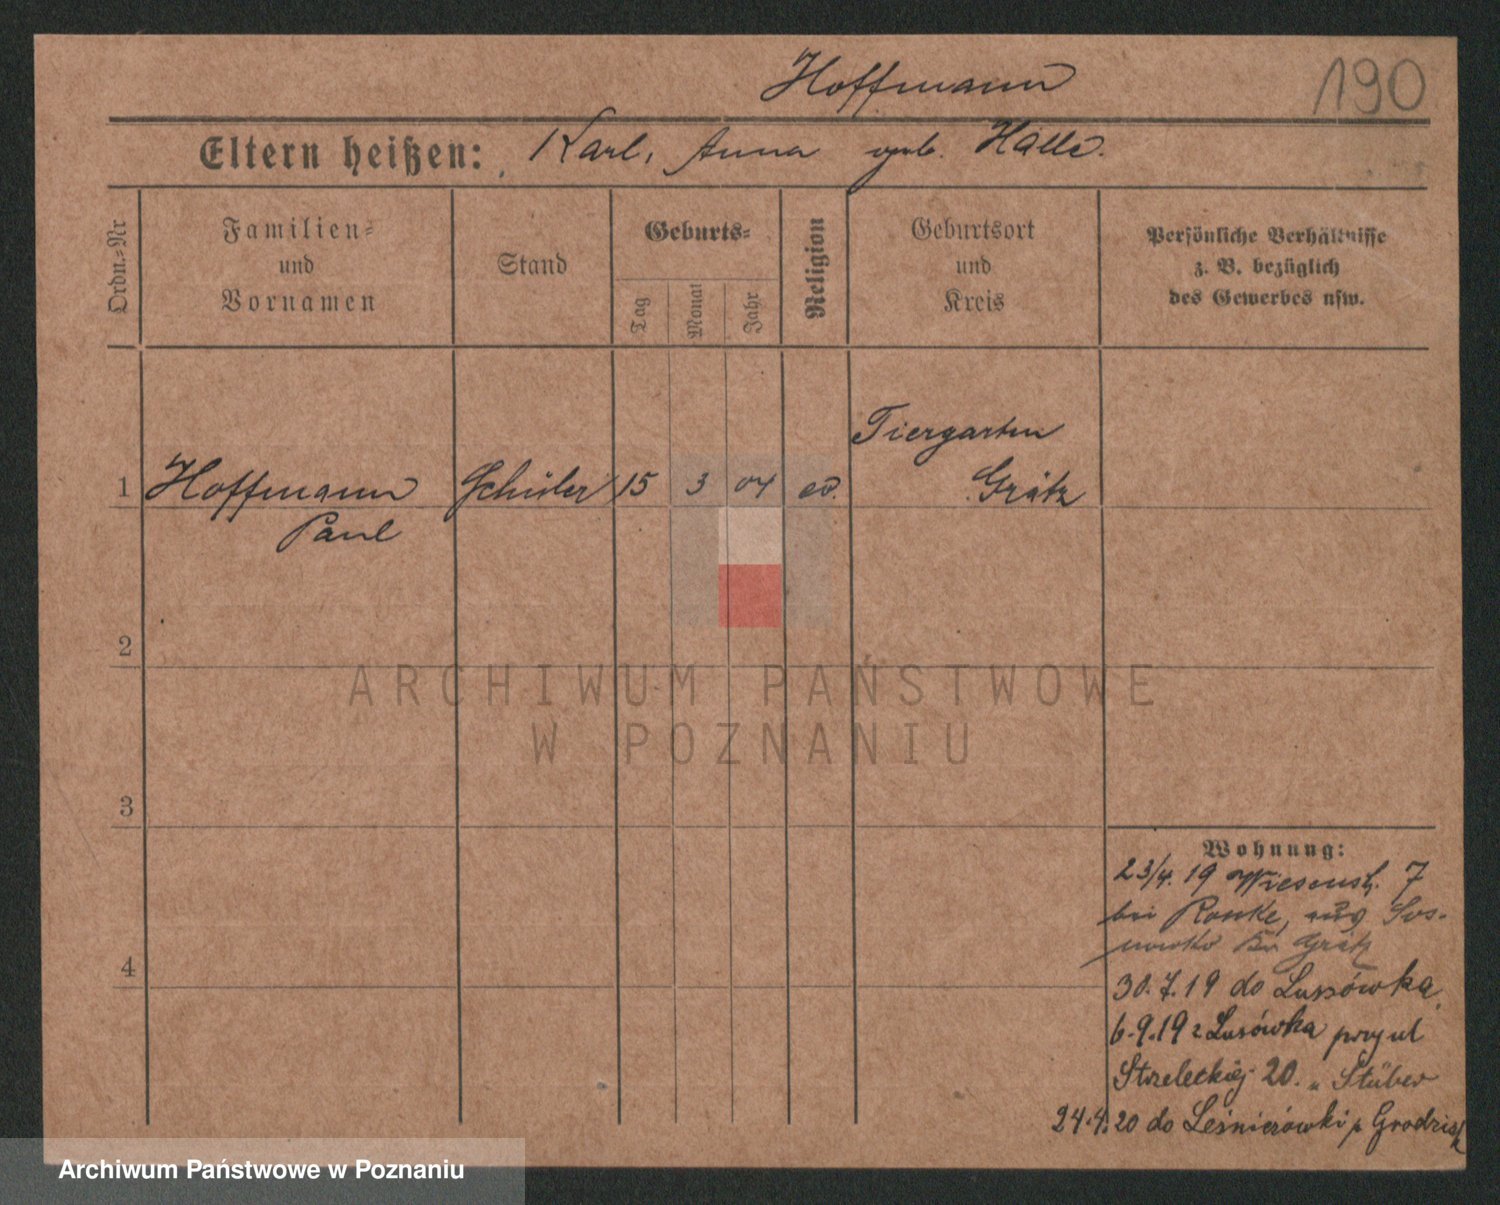 Hoffmann
190
Eltern heißen: Karl, Anna geb. Hälle.
Ordn.-Nr
Familien-
und
Vornamen
Stand
Geburts-
Tag
Monat
Jahr
Religion
Geburtsort
und
Kreis
Persönliche Verhältnisse
z. B. bezüglich
des Gewerbes usw.
Tiergarten
1 Hoffmann Schüler 15 3 04 ev. Grätz
Paul
2
ARCHIWUM PAŃSTWOWE
W POZNANIU
3
4
Wohnung:
23/4. 19 Wiesenstr. 7
bei Ronke, aus Sos-
nowko Kr Grätz
30.7.19 do Lussówka.
6.9.19 z Lusówka przy ul
Strzeleckiej 20. " Stüber
24.4.20 do Leśnierówki p Grodzisk
Archiwum Państwowe w Poznaniu